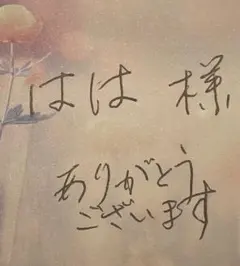 はは 様
ありがとう
ございます